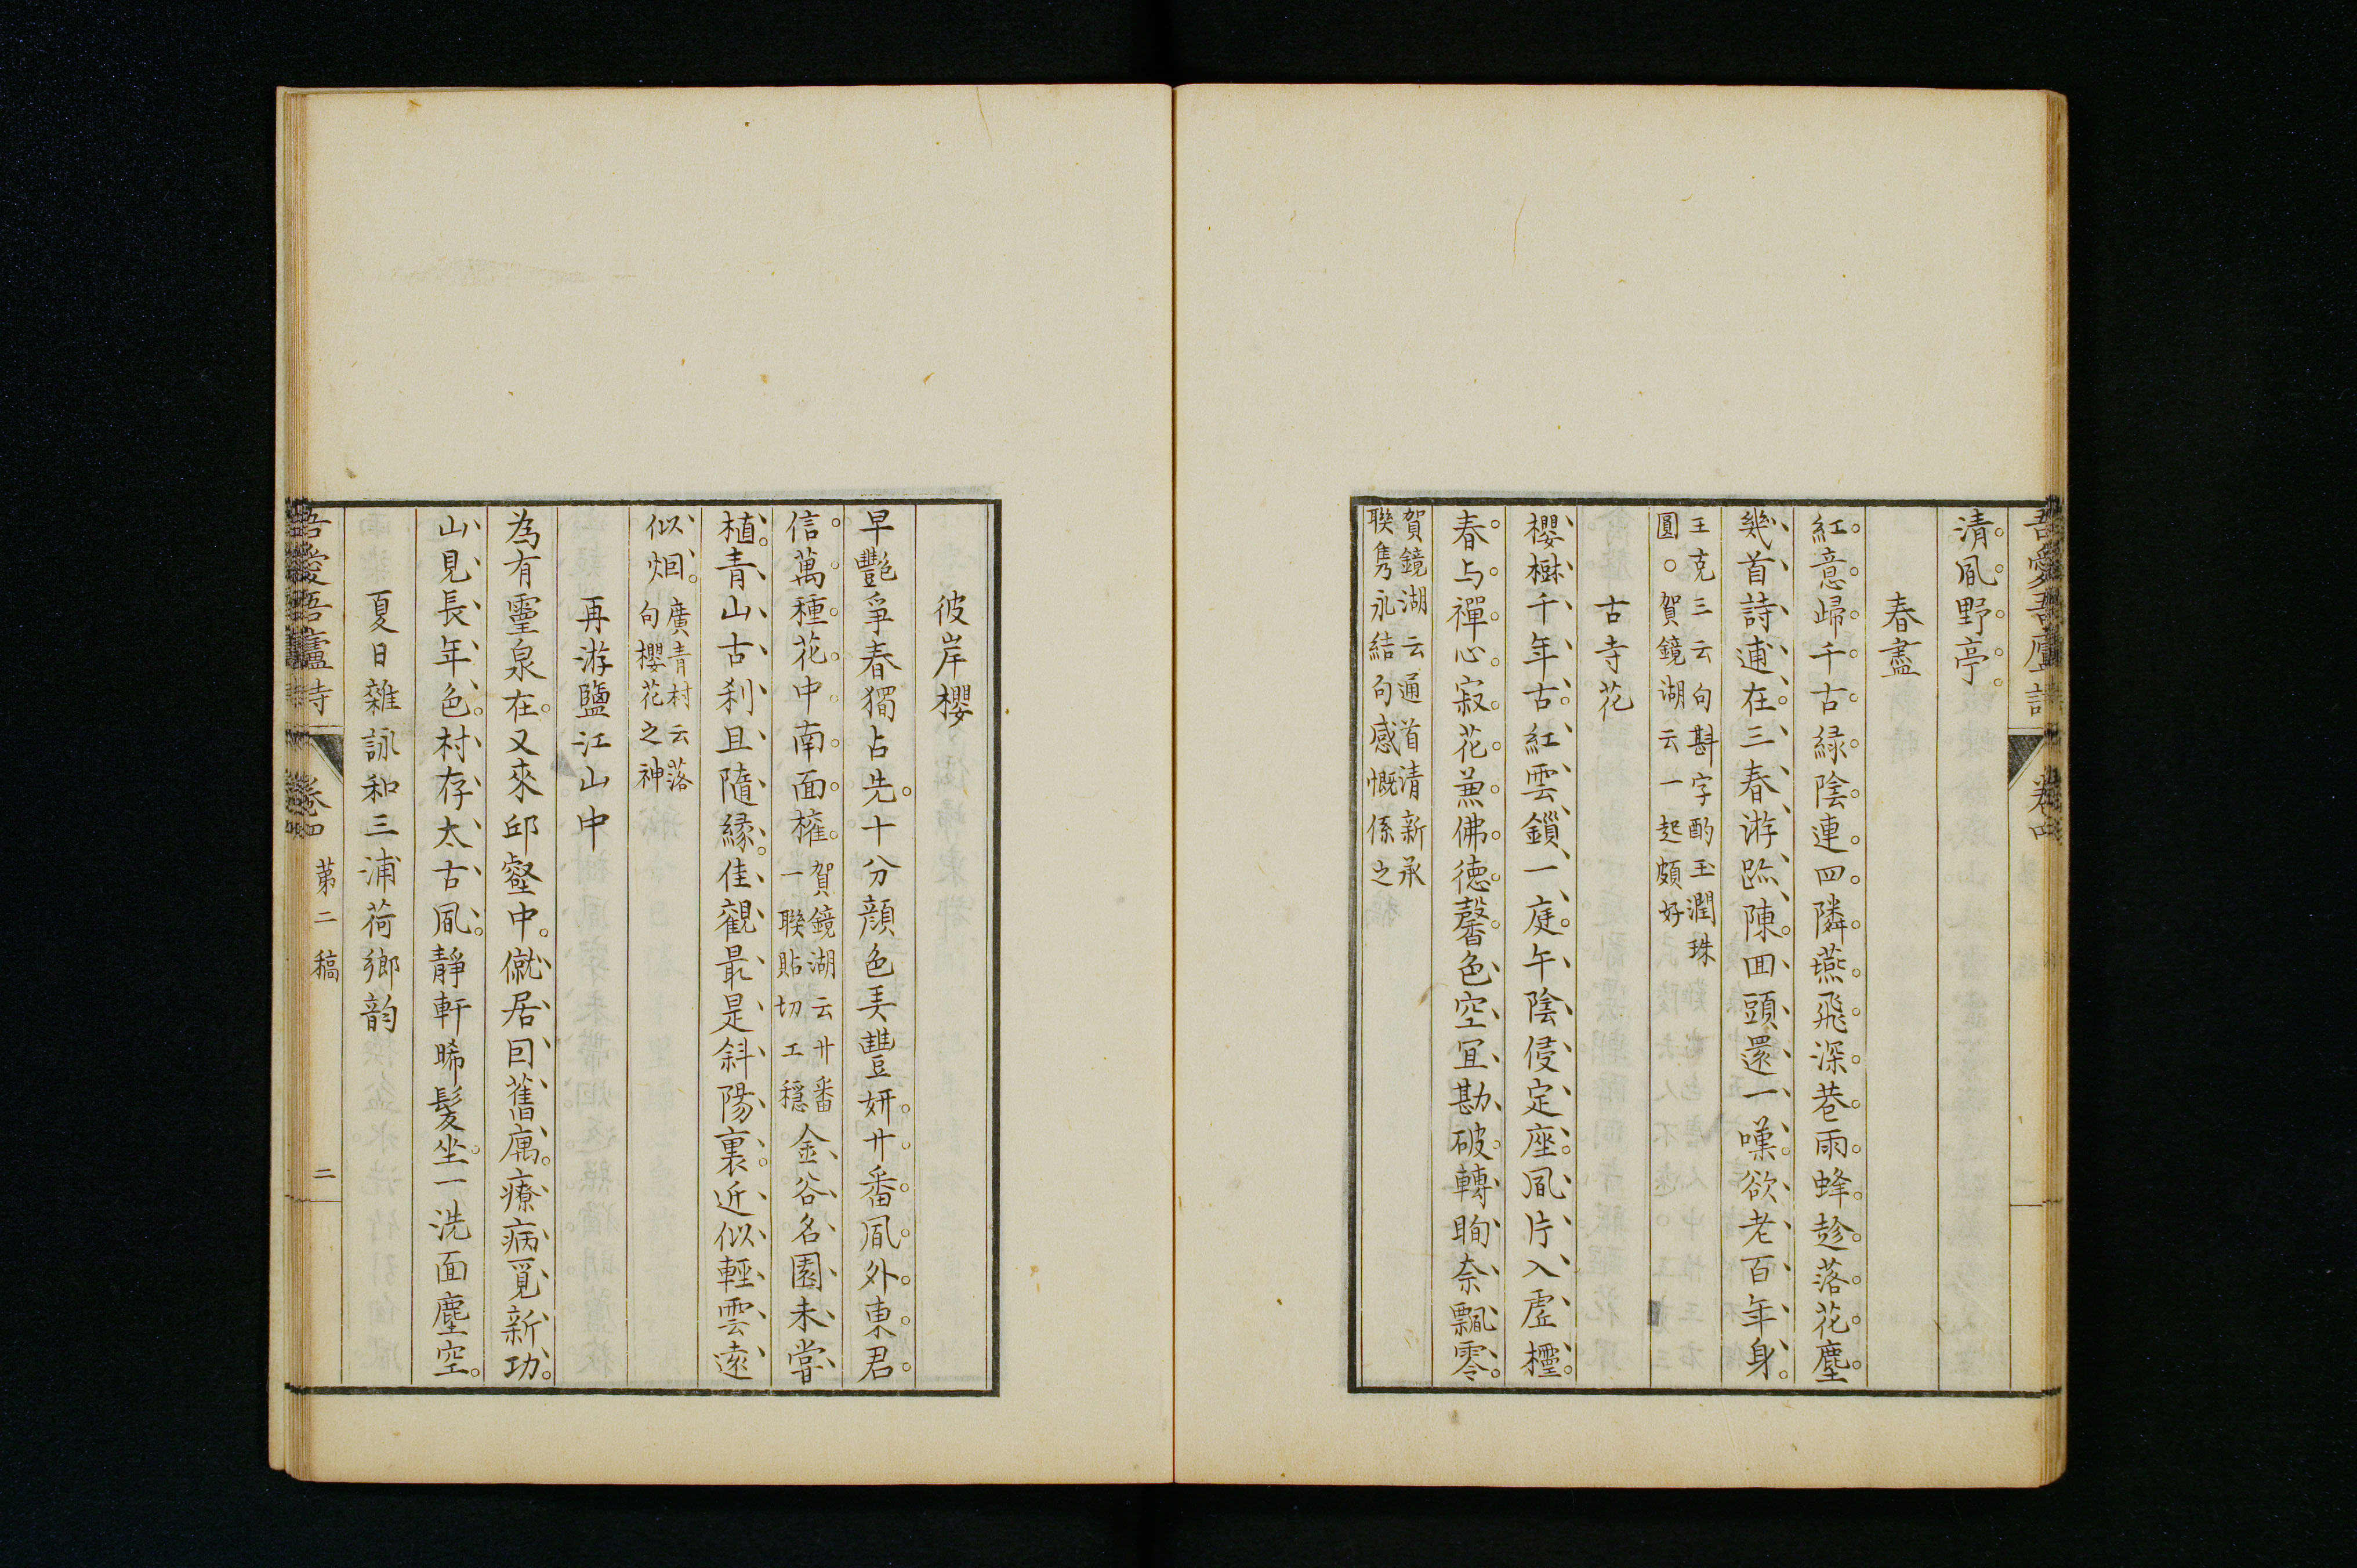 吾愛吾廬詩 卷四
清風野亭
春盡
紅意歸千古綠陰連四隣燕飛深巷雨蜂趁落花塵
幾首詩逋在三春游跡陳回頭還一嘆欲老百年身
王克三云句斟字酌玉潤珠
圓。賀鏡湖云一起頗好
古寺花
櫻樹千年古紅雲鎖一庭午陰侵定座風片入虛櫺
春与禪心寂花兼佛德馨色空宜勘破轉眴奈飄零
賀鏡湖云通首清新承
聯雋永結句感慨係之
彼岸櫻
早艷爭春獨占先十分顏色美豐妍廿番風外東君
信萬種花中南面權
賀鏡湖云廿番
一聯貼切工穩
金谷名園未嘗
植青山古刹且隨緣佳觀最是斜陽裏近似輕雲遠
似烟
廣青村云落
句櫻花之神
再游鹽江山中
為有靈泉在又來邱壑中僦居曰舊寓療病覓新功
山見長年色村存太古風靜軒晞髮坐一洗面塵空
夏日雜詠和三浦荷鄉韵
吾愛吾廬詩 卷四 苐二稿 二